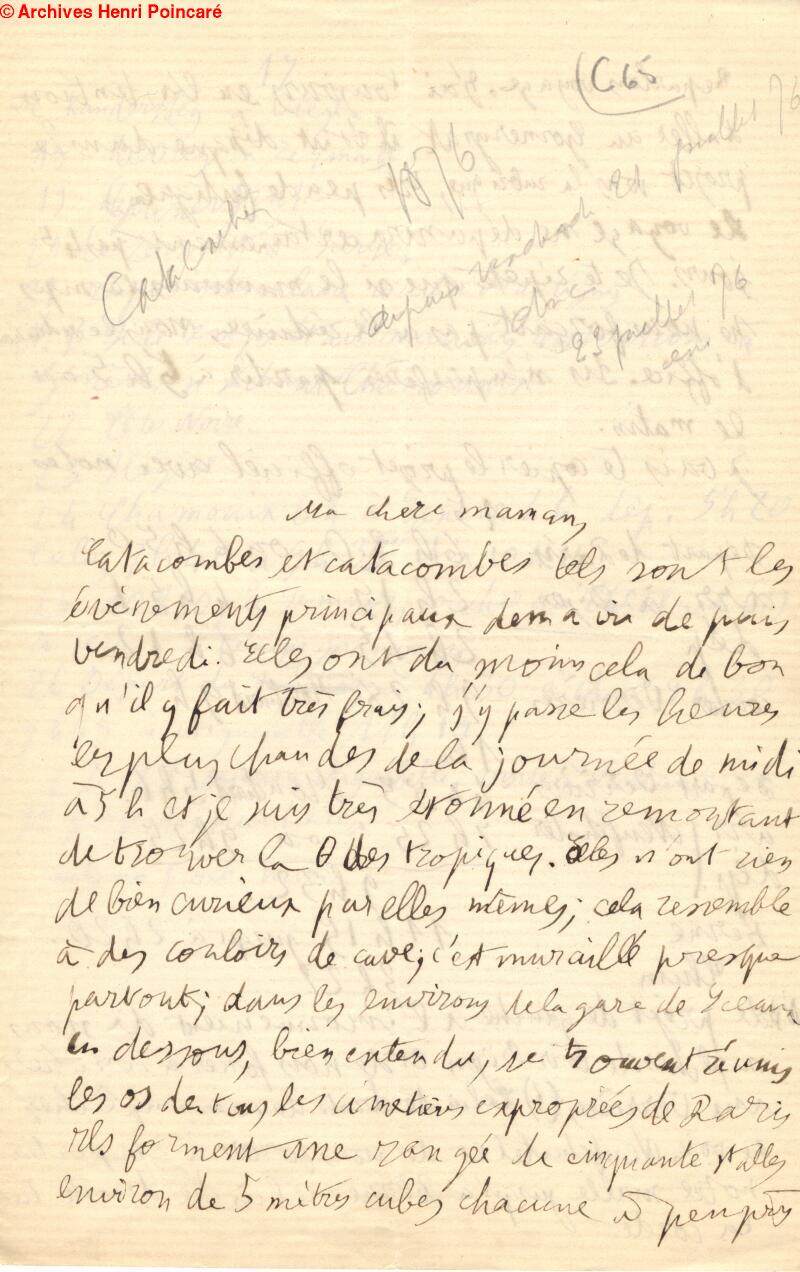 © Archives Henri Poincaré
(C 65
1876
Catacombes
depuis vendredi 21 juillet 76
donc
23 juillet 76
Ma chère maman,
Catacombes et catacombes tels sont les
évènements principaux de ma vie depuis
vendredi. Elles ont du moins cela de bon
qu'il y fait très frais; j'y passe les heures
les plus chaudes de la journée de midi
à 5 h et je suis très étonné en remontant
de trouver la θ des tropiques. Elles n'ont rien
de bien curieux par elles mêmes; cela ressemble
à des couloirs de cave; c'est muraillé presque
partout; dans les environs de la gare de Sceaux
en dessous, bien entendu, se trouvent réunis
les os de tous les cimetières expropriés de Paris
Ils forment une rangée de cinquante stalles
environ de 5 mètres cubes chacune à peu près